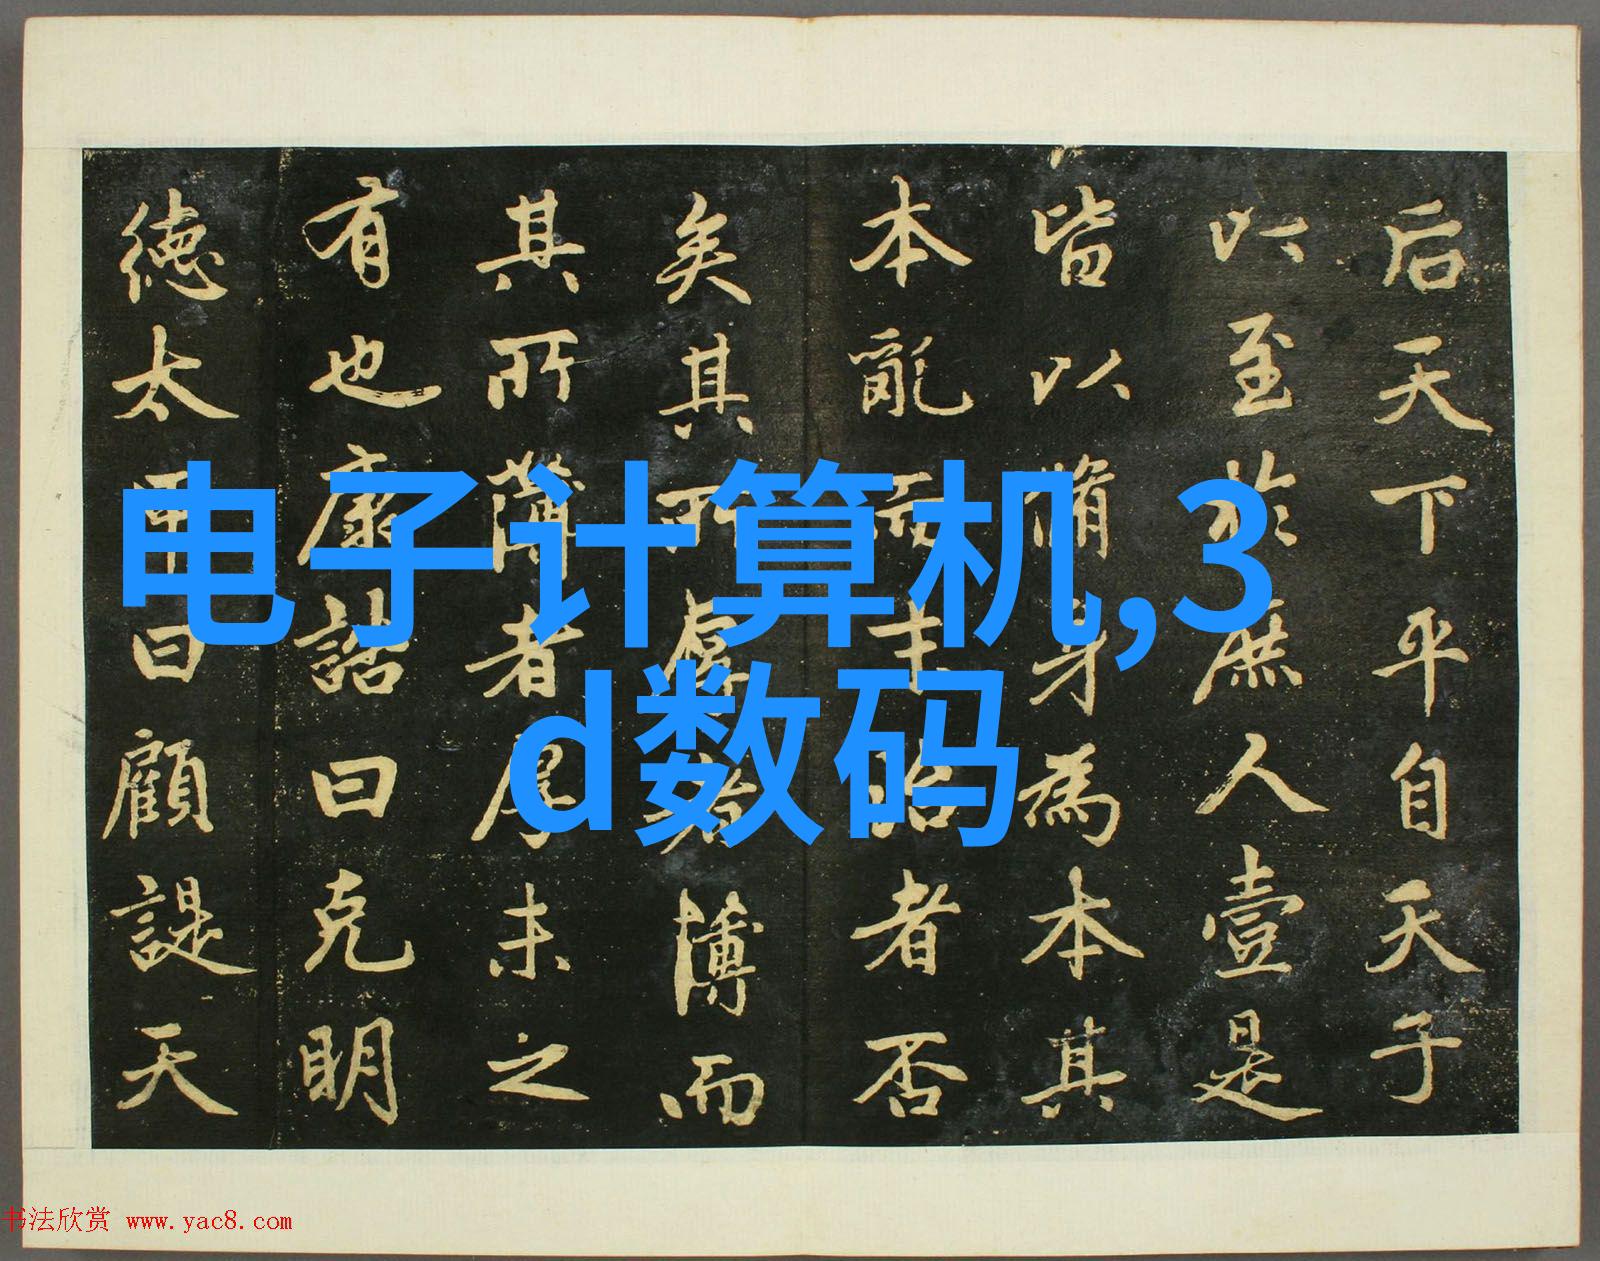 后天下平自天子
以至於庶人壹是
皆以脩身為本其
本亂而末治者否
矣其所厚者薄而
其所薄者厚未之
有也康誥曰克明
徳太甲曰顧諟天
电子计算机,3
d数码
书法欣赏 www.yac8.com